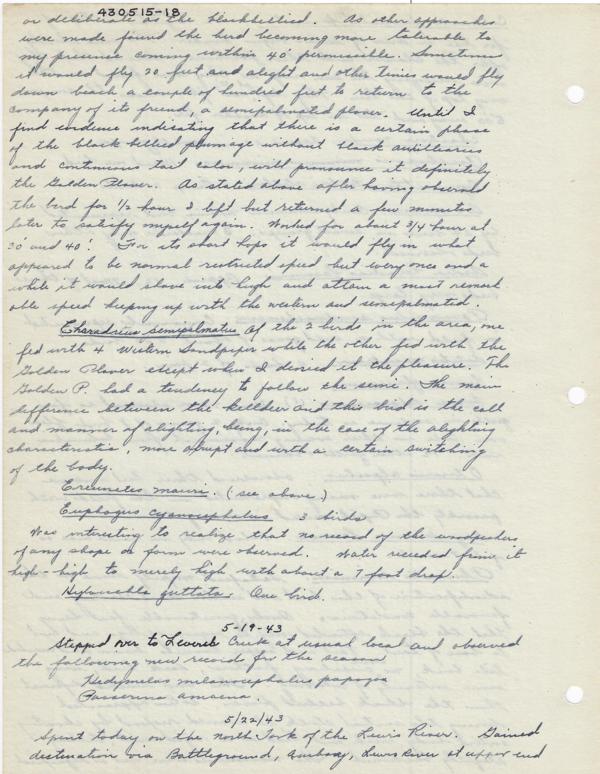 430515-18
or deliberate as the blackbellied. As other approaches
were made found the bird becoming more tolerable to
my presence coming within 40' permissible. Sometimes
it would fly 20 feet and alight and other times would fly
down beach a couple of hundred feet to return to the
company of its friend, a semipalmated plover. Until I
find evidence indicating that there is a certain phase
of the black bellied plumage without black auxilliaries
and continuous tail color, will pronounce it definitely
the Golden Plover. As stated above after having observed
the bird for 1/2 hour I left but returned a few minutes
later to satisfy myself again. Worked for about 3/4 hour at
30' and 40'. For its short hops it would fly in what
appeared to be normal restricted speed but every once and a
while it would shove into high and attain a most remark
able speed keeping up with the western and semipalmated.
Charadrius semipalmatus Of the 2 birds in the area, one
fed with 4 Western Sandpiper while the other fed with the
Golden Plover except when I denied it the pleasure. The
Golden P. had a tendency to follow the semi. The main
difference between the killdeer and this bird is the call
and manner of alighting, being, in the case of the alighting
characteristic, more abrupt and with a certain switching
of the body.
Ereunetes mauri. (see above.)
Euphagus cyanocephalus 3 birds
Was interesting to realize that no record of the woodpeckers
of any shape or form were observed. Water receded from it
high-high to merely high with about a 7 foot drop.
Hylocichla guttata. One bird.
5-19-43
Stepped over to Leverich Creek at usual local and observed
the following new records for the season
Hedymeles melanocephalus papago
Passerina amoena.
5/22/43
Spent today on the North Fork of the Lewis River. Gained
destination via Battleground, Amboy, Lewis River at upper end